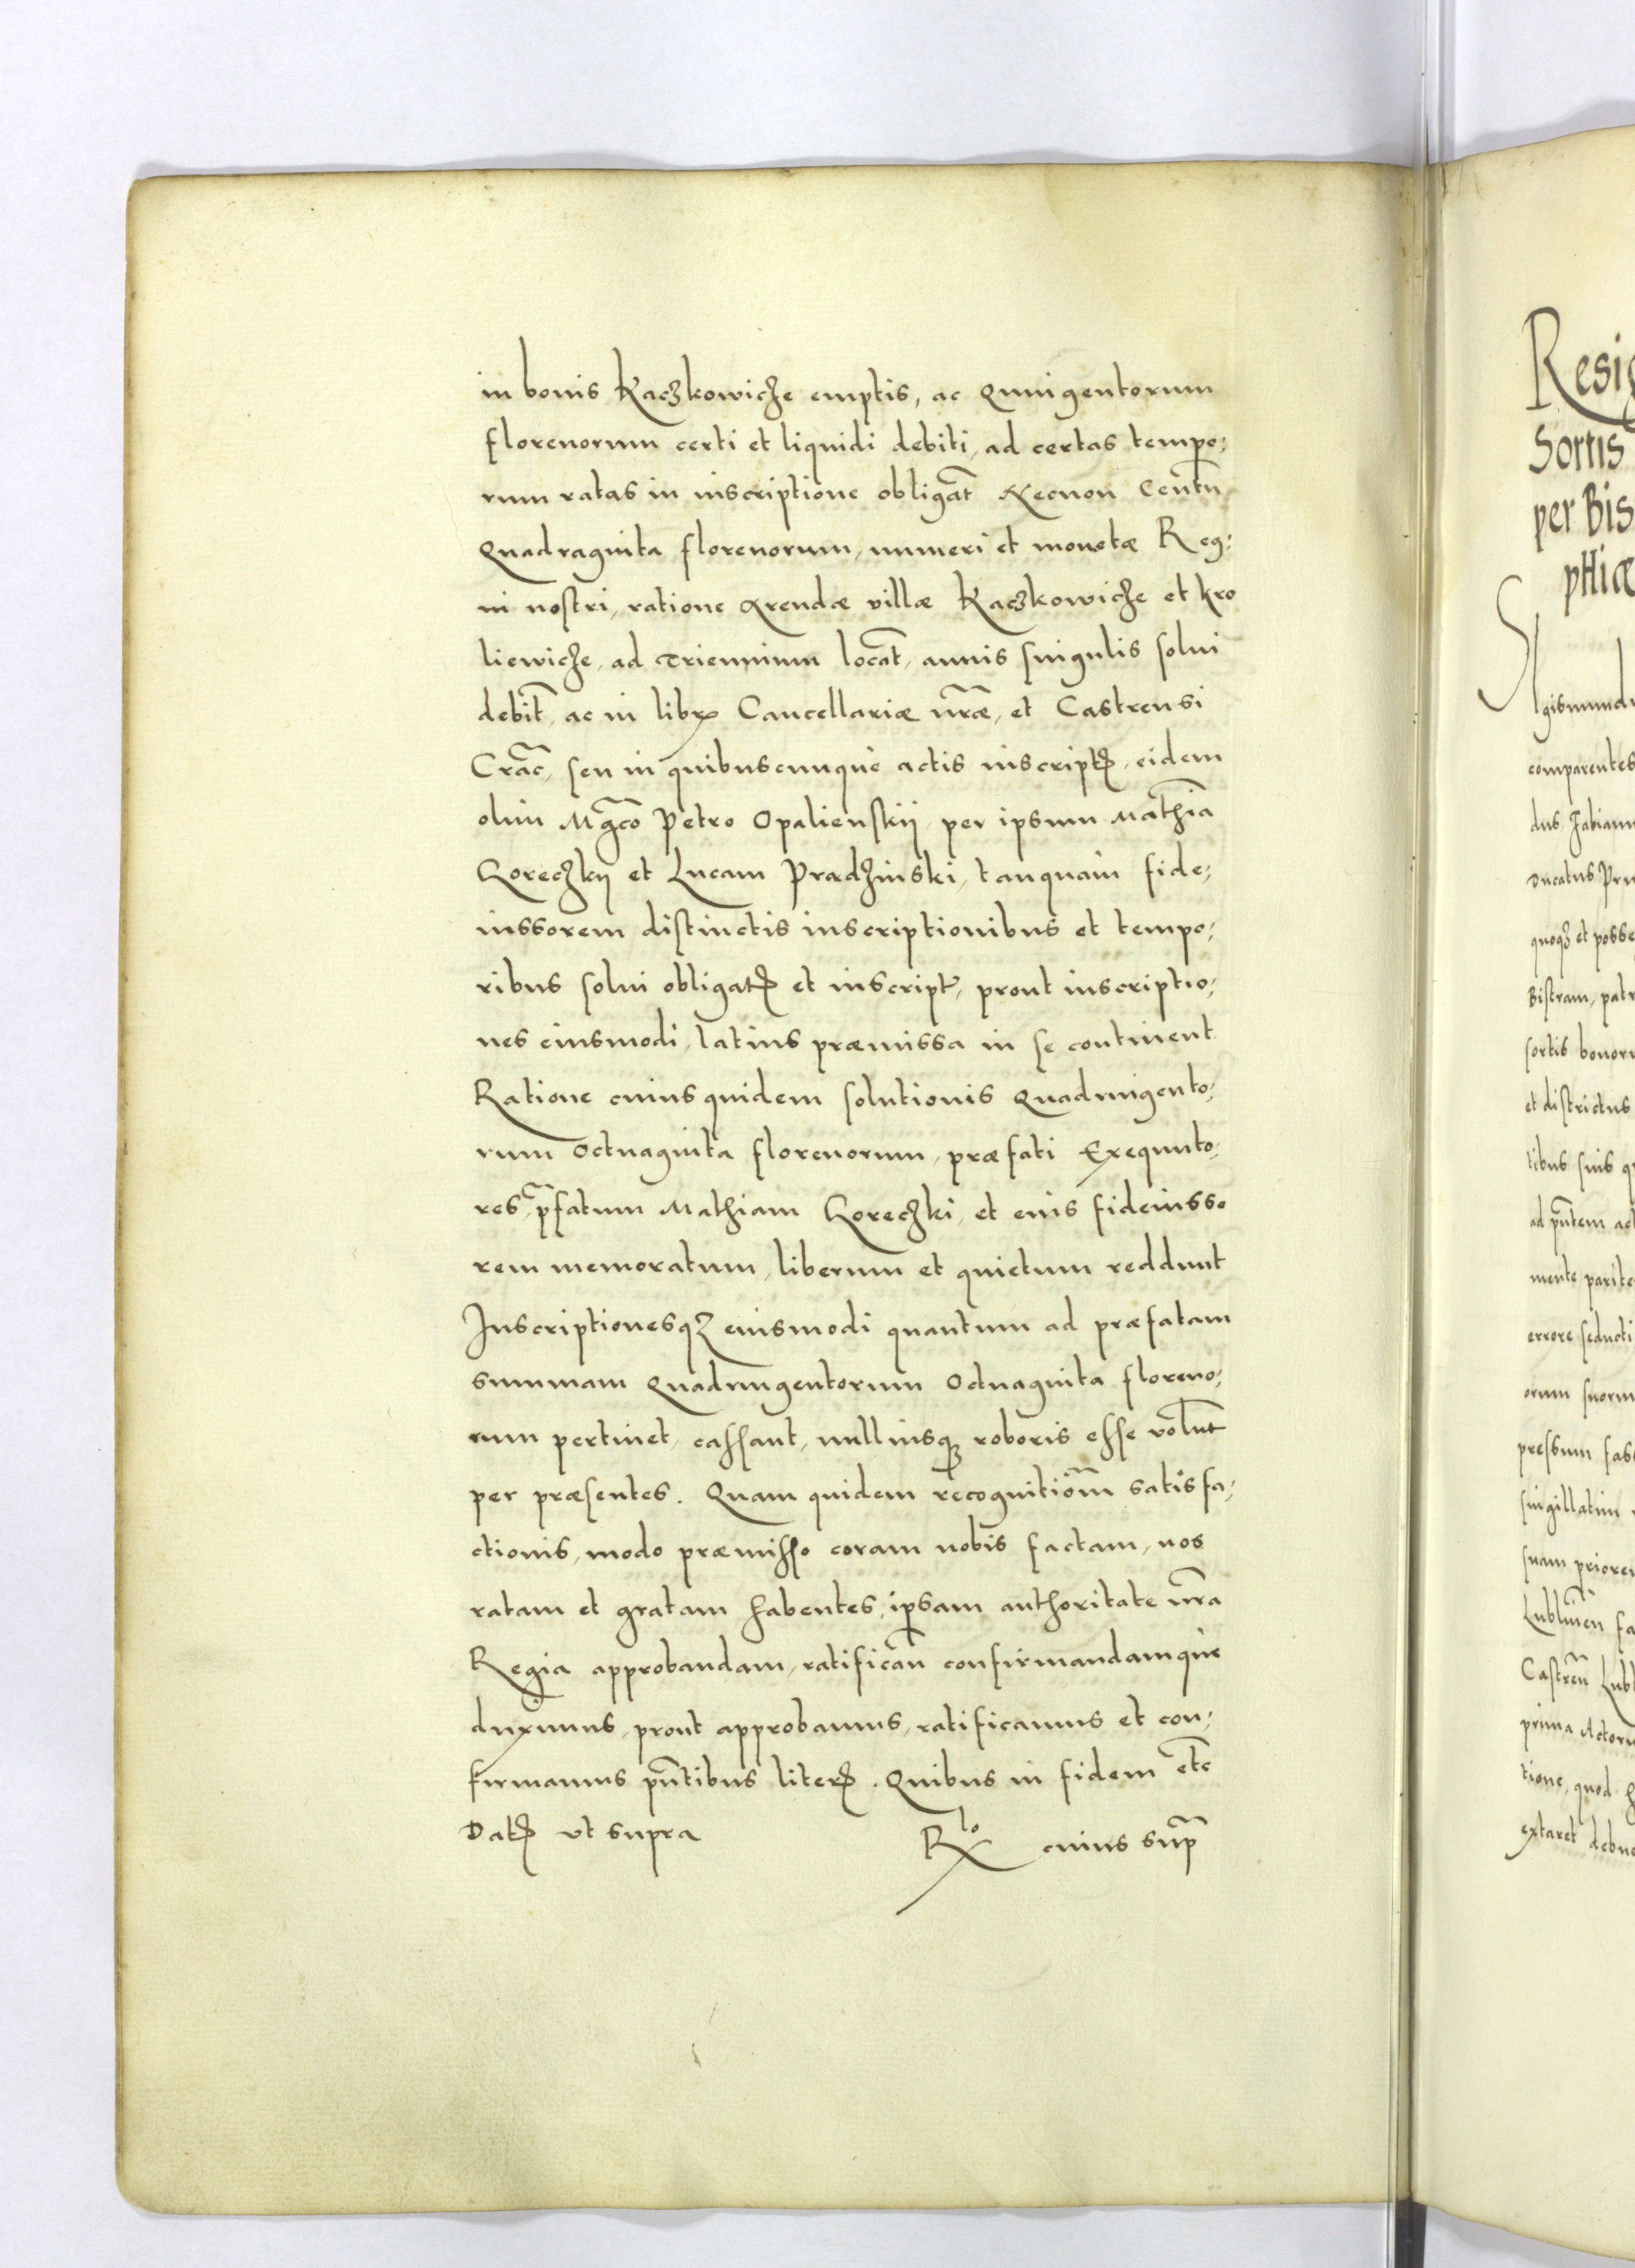 in bonis Kaczkowicze emptis, ac Quingentorum
florenorum certi et liquidi debiti, ad certas tempo;
rum ratas in inscriptione obligat̃ Necnon Centũ
Quadraginta florenorum, numeri et monetæ Reg;
ni nostri, ratione Arendæ villæ Kaczkowicze et Kro
liewicze, ad Triennium locat̃, annis singulis solui
debit̃, ac in libr̃ Cancellariæ nr̃æ, et Castrensi
Crac̃, seu in quibuscunque actis inscript̃, eidem
olim Mgc̃o Petro Opalienskij per ipsum Mathiã
Goreczkij et Lucam Prædzinski, tanquam fide;
iussorem distinctis inscriptionibus et tempo;
ribus solui obligat̃ et inscript̃, prout inscriptio;
nes eiusmodi, latius præmissa in se continent
Ratione cuius quidem solutionis Quadringento;
rum Octuaginta florenorum, præfati Exequuto;
res, p̃fatum Mathiam Goreczki, et eius fideiusso
rem memoratum, liberum et quietum reddunt
Inscriptionesq₃ eiusmodi quantum ad præfatam
summam Quadringentorum Octuaginta floreno;
rum pertinet, cassant, nulliusq₃ roboris esse volũt
per præsentes. Quam quidem recognitiõm satisfa;
ctionis, modo præmisso coram nobis factam, nos
ratam et gratam habentes, ipsam authoritate nr̃a
Regia approbandam, ratifican̄ confirmandamque
duximus, prout approbamus, ratificamus et con;
firmamus pñtibus liter̃. Quibus in fidem etc̃
Dat̃ vt supra R̃lo cuius sup̃
Resig
Sortis
per Bis
phiæ
Sigismund
comparentes
dus Fabian
Ducatus Pru
quoq₃ et posse
Bistram, patr
sortis bonor
et districtus
tibus suis q
ad pñtem act
mente parite
errore seducti
orum suorum
pressum fas
singillatim
suam priorem
Lublineñ fa
Castreñ Lubl
prima Actoru
tione, quod
extaret debu